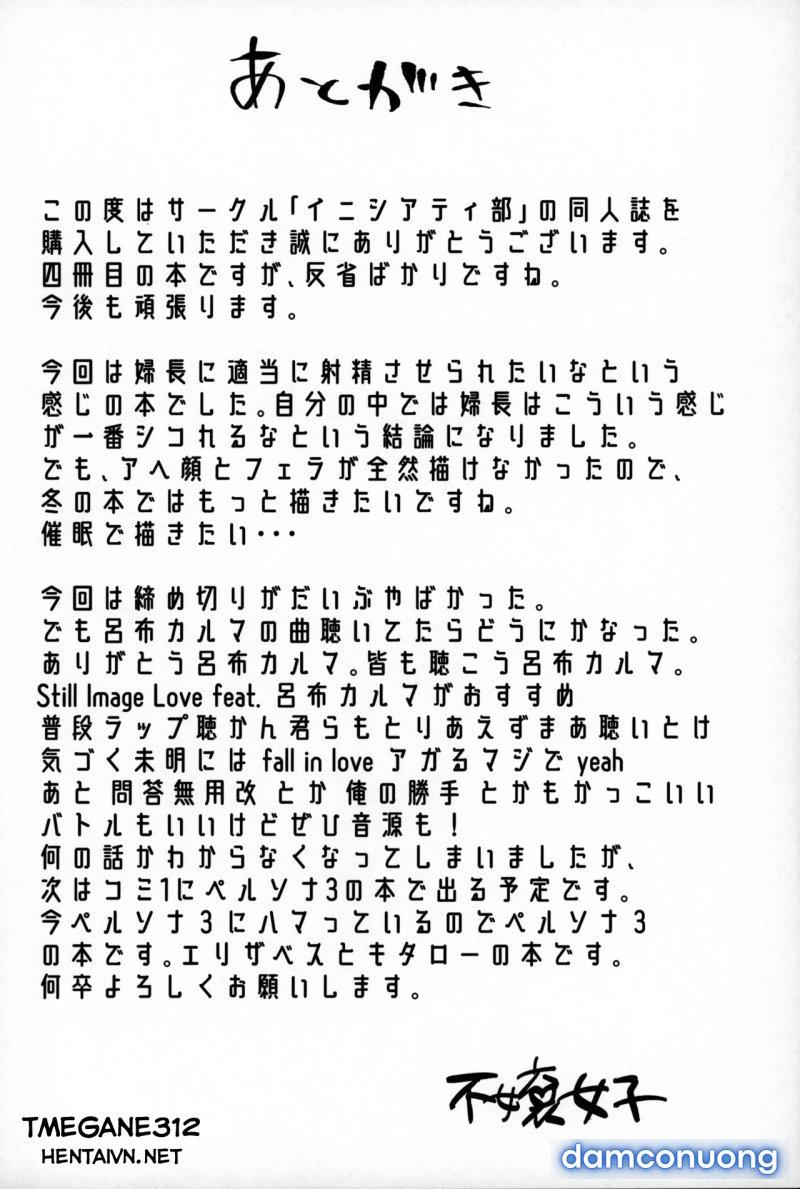 あとがき
この度はサークル「イニシアティ部」の同人誌を
購入していただき誠にありがとうございます。
四冊目の本ですが、反省ばかりですね。
今後も頑張ります。
今回は婦長に適当に射精させられたいなという
感じの本でした。自分の中では婦長はこういう感じ
が一番シコれるなという結論になりました。
でも、アヘ顔とフェラが全然描けなかったので、
冬の本ではもっと描きたいですね。
催眠で描きたい・・・
今回は締め切りがだいぶやばかった。
でも呂布カルマの曲聴いてたらどうにかなった。
ありがとう呂布カルマ。皆も聴こう呂布カルマ。
Still Image Love feat. 呂布カルマがおすすめ
普段ラップ聴かん君らもとりあえずまあ聴いとけ
気づく未明には fall in love アガるマジで yeah
あと 問答無用改 とか 俺の勝手 とかもかっこいい
バトルもいいけどぜひ音源も!
何の話かわからなくなってしまいましたが、
次はコミ1にペルソナ3の本で出る予定です。
今ペルソナ3にハマっているのでペルソナ3
の本です。エリザベスとキタローの本です。
何卒よろしくお願いします。
TMEGANE312
HENTAIVN.NET
damconuong